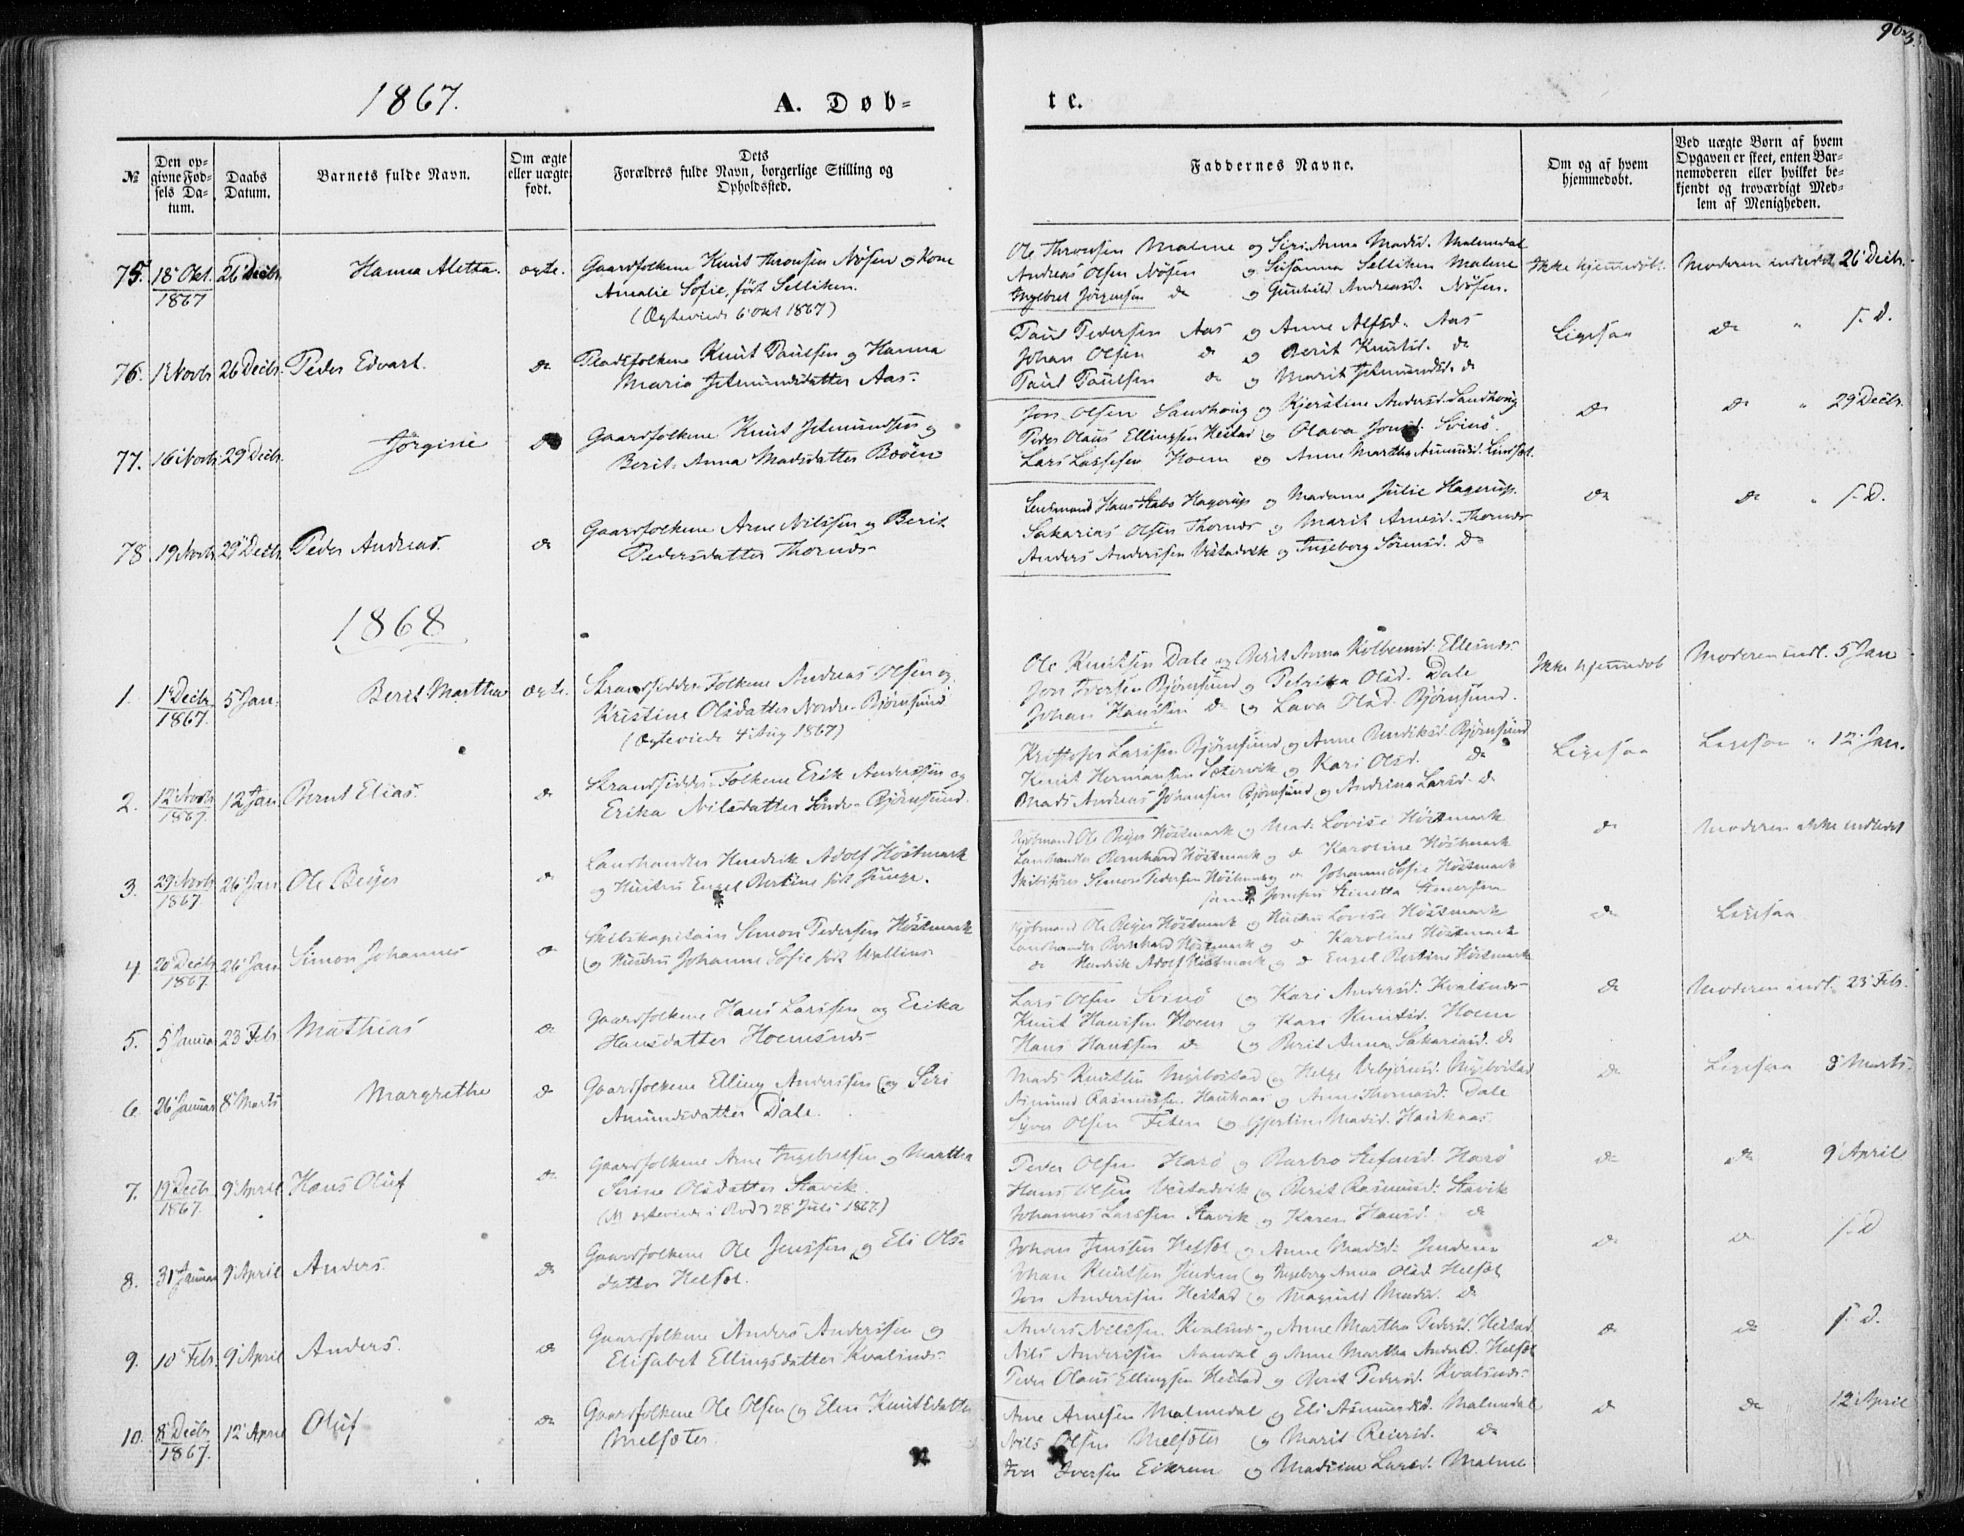 963.
1867. A. Døb= te.
№
Den op= givne Fød= sels Da= tum.
Daabs Datum.
Barnets fulde Navn.
Om ægte eller uægte født.
Dets Forældres fulde Navn, borgerlige Stilling og Opholdssted.
Faddernes Navne.
Om og af hvem hjemmedøbt.
Ved uægte Børn af hvem Opgaven er skeet, enten Bar= nemoderen eller hvilket be= kjendt og troværdigt Med= lem af Menigheden.
75. 18 Okt. 1867 26 Decbr. Hanna Aletta. ægte. Gaardfolkene Knut Thronsen Nøsen og Kone
Amalie Sofie, født Selliken.
(Ægteviede 6 Okt 1867)
Ole Thronsen Malme og Siri Anna Madsd. Malmedal
Andreas Olsen Nøsen og Susanna Selliken Malme
Ingebret Jörgensen do og Gunhild Andreasd. Nøsen.
Ikke hjemmedöbt. Moderen indledet 26 Decbr.
76. 1 Novbr 26 Decbr. Peder Edvart. do Pladsfolkene Knut Paulsen og Hanna
Maria Jetmundsdatter Aas.
Paul Pedersen Aas og Anne Alfsd. Aas
Johan Olsen do og Berit Knutsd. do
Paul Paulsen do og Marit Jetmundsd. do
Ligesaa do " s. D.
77. 16 Novbr 29 Decbr. Jörgine do Gaardfolkene Knut Jetmundsen og
Berit Anna Madsdatter Bøöen
Jon Olsen Sandhoug og Kjerstine Andersd. Sandhoug
Peder Olaus Ellingsen Hestad og Olava Jonsd. Svinö.
Lars Lassesen Hoem og Anne Martha Amundsd. Lindset.
do do " 29 Decbr.
78. 19 Novbr 29 Decbr Peder Andreas. do Gaardfolkene Arne Nilssen og Berit
Pedersdatter Thornes
Lensmand Hans Stabo Hagerup og Madame Julie Hagerup.
Sakarias Olsen Thornes og Marit Arnesd. Thornes
Anders Anderssen Vestadvik og Ingeborg Sörensd. do
do do " s. D.
1868
1. 1 Decbr. 1867. 5 Jan. Berit Martha ægte. Strandsidder-Folkene Andreas Olsen og
Kristine Olsdatter Nordre-Björnsund
(Ægteviede 4 Aug 1867)
Ole Knutsen Dale og Berit Anna Kolbensd. Ellesnes
Jon Iversen Björnsund og Petrika Olsd. Dale
Johan Hanssen do og Lava Olsd. Björnsund.
Ikke hjemmedöb Moderen indl. 5 Jan
2. 12 Novbr 1867. 12 Jan Bernt Elias. do Strandsidder-Folkene Erik Anderssen og
Erika Nilsdatter Söndre-Björnsund.
Kristofer Larssen Björnsund og Anne Bendiksd. Björnsund
Knut Hermansen Setervik og Kari Olsd. do
Mads Andreas Johansen Björnsund og Andrina Larsd. do
Ligesaa Ligesaa " 12 Jan.
3. 29 Novbr 1867. 26 Jan Ole Beyer do Landhandler Hendrik Adolf Höstmark
og Hustru Engel Bertine født Junge.
Kjöbmand Ole Beyer Höstmark og Mad. Lovise Höstmark
Landhandler Bernhard Höstmark og do Karoline Höstmark
Skibsförer Simon Pedersen Höstmark og do Johanne Sofie Höstmark
samt Jomfru
do Moderen ikke indledet
4. 20 Decbr 1867. 26 Jan Simon Johannes do Skibskapitain Simon Pedersen Höstmark
og Hustru Johanne Sofie født Wallins
Kjöbmand Ole Beyer Höstmark og Hustru Lovise Höstmark
Landhandler Bernhard Höstmark og do Karoline Höstmark
do Hendrik Adolf Höstmark og do Engel Bertine Höstmark
do Ligesaa
5. 5 Januar 23 Febr. Mathias do Gaardfolkene Hans Larssen og Erika
Hansdatter Hoemsnes
Lars Olsen Svinö og Kari Andersd. Kvalsnes
Knut Hanssen Hoem og Kari Knutsd. Hoem
Hans Hanssen do og Berit Anna Sakariasd. do
do Moderen indl. 23 Feb.
6. 26 Januar 8 Marts Margrethe do Gaardfolkene Elling Anderssen og Siri
Amundsdatter Dale.
Mads Knutsen Ingebostad og Helge Vebjörnsd. Ingebostad
Asmund Rasmussen Haukaas og Anne Thomasd. Dale
Syver Olsen og Gjertine Madsd. Haukaas.
do Ligesaa 8 Marts.
7. 19 Decbr 1867. 9 April Hans Oluf do Gaardfolkene Arne Ingebretsen og Martha
Serine Olsdatter Stavik.
(NB ægteviede i Bud d 28 Juli 1867)
Peder Olsen Harö og Barbro Stefensd. Harö
Hans Olsen Vestadvik og Berit Rasmusd. Stavik
Johannes Larssen Stavik og Karen Hansd. do
do do 9 April
8. 31 Januar 9 April Anders do Gaardfolkene Ole Jenssen og Eli Ols=
datter Helset.
Johan Jenssen Helset og Anne Madsd. Jendem
Johan Knutsen Jendem og Ingeborg Anna Olsd. Helset
Jon Anderssen Hestad og Magnild Madsd. do
do do s. D
9. 10 Feb. 9 April Anders. do Gaardfolkene Anders Anderssen og
Elisabet Ellingsdatter Kvalsnes.
Anders Nilssen Kvalsnes og Anne Martha Pedersd. Hestad
Nils Anderssen Aandal og Anne Martha Helset
Peder Olaus Ellingsen Hestad og Berit Pedersd. Kvalsnes.
do do s. D.
10. 8 Decbr 1867. 12 April Oluf do Gaardfolkene Ole Olsen og Elen Knutsdatter
Melseter.
Arne Arnesen Malmedal og Eli Asmundsd. Malmedal
Nils Olsen Melseter og Marit Reiersd. do
Iver Iversen Eikrem og Madsine Larsd. Malme
do do 12 April